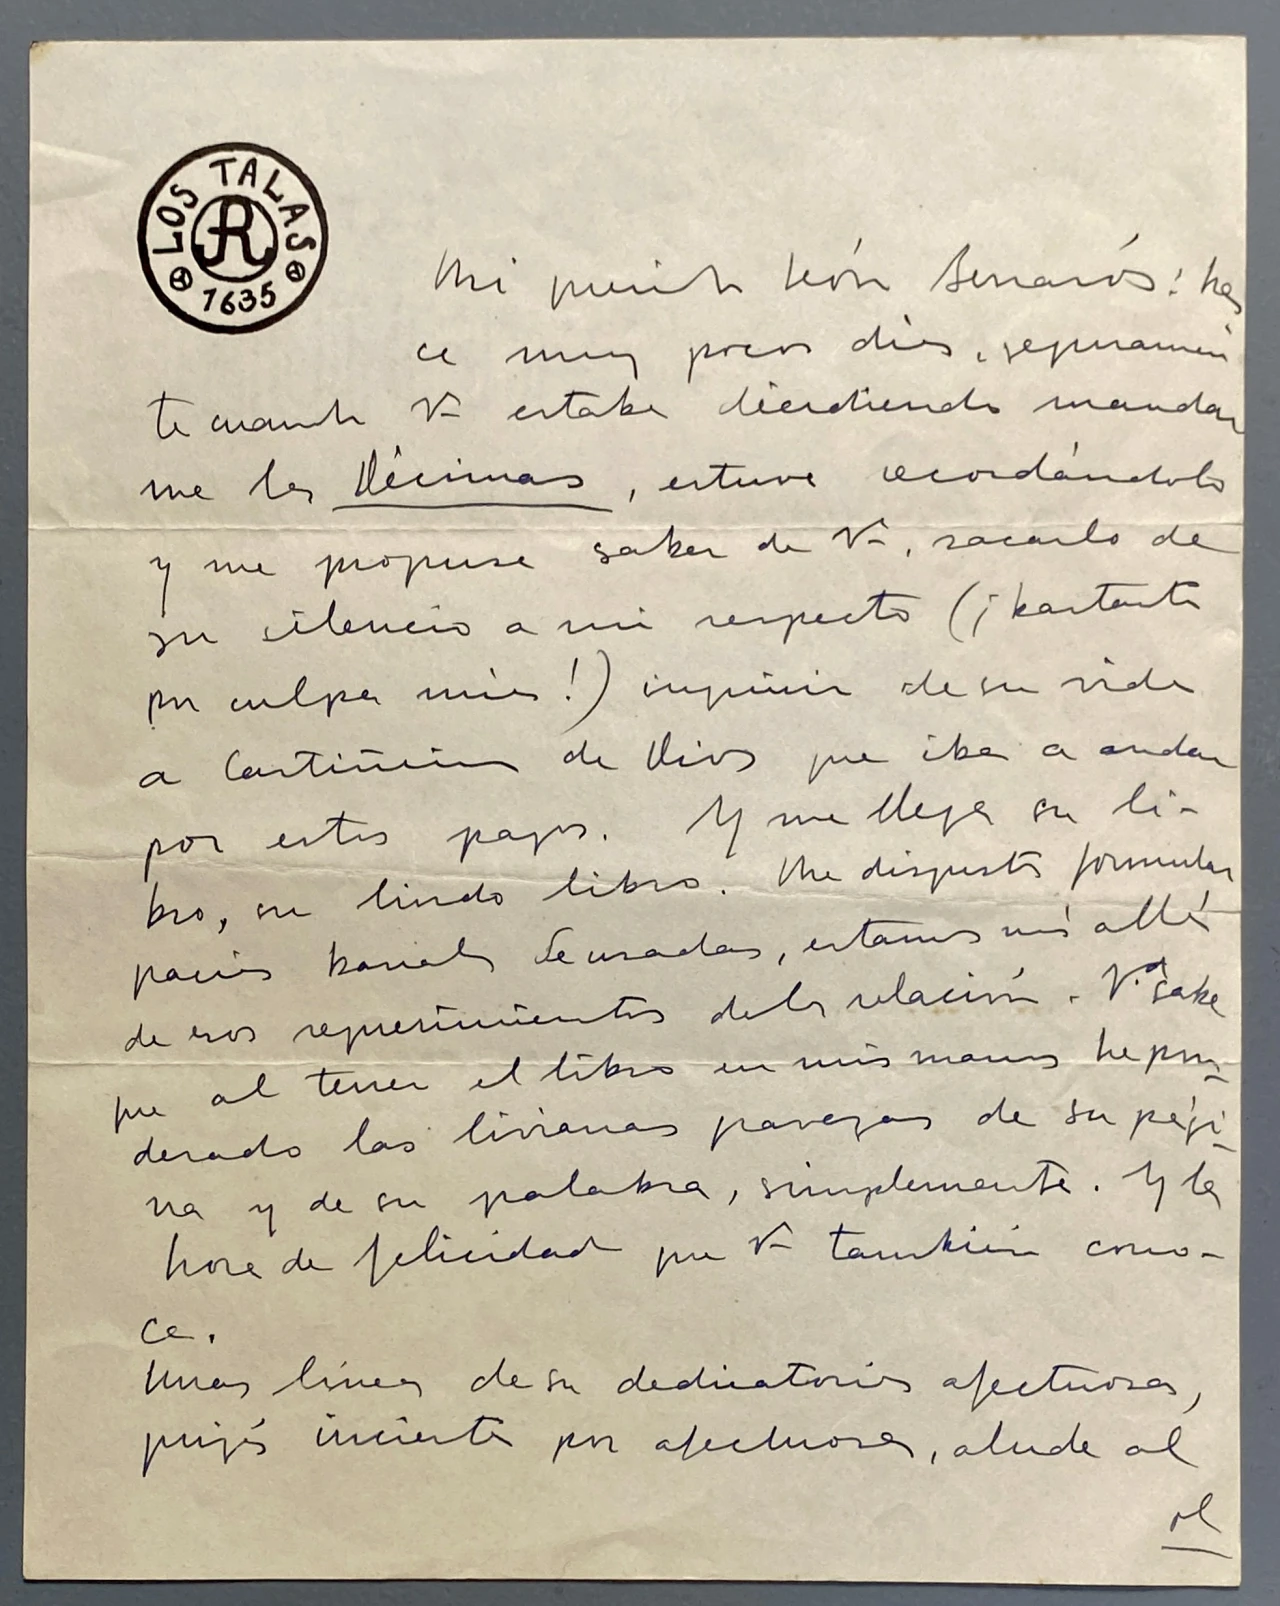 LOS TALAS
R
1635
Mi querido León Benarós: ha
ce muy pocos días, seguramen
te cuando V– estaba decidiendo mandar
me las Décimas, estuve recordándolo
y me propuse saber de V–, sacarlo de
su silencio a mi respecto (¡bastante
por culpa mía!) inquirir de su vida
a Castiñeira de Dios que iba a andar
por estos pagos. Y me llega su li-
bro, su lindo libro. Me disgusta formular
gracias banales usadas, estamos más allá
de esos requerimientos de la relación. V.d sabe
que al tener el libro en mis manos he pon-
derado las livianas pavezas de su pági-
na y de su palabra, simplemente. Y la
hora de felicidad que V– también cono-
ce.
Unas líneas de su dedicatoria afectuosa,
quizás incierta por afectuosa, alude al
al